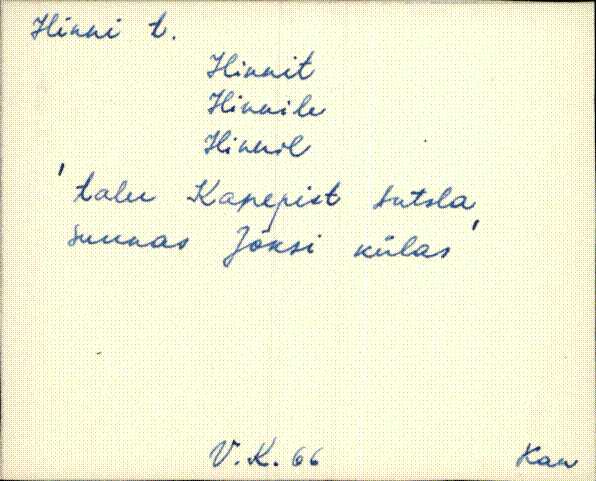 Hinni t.
Hinnit
Hinnile
Hinnil
'talu Kanepist Sutsla
suunas Jõksi külas'
V.K. 66 Kan